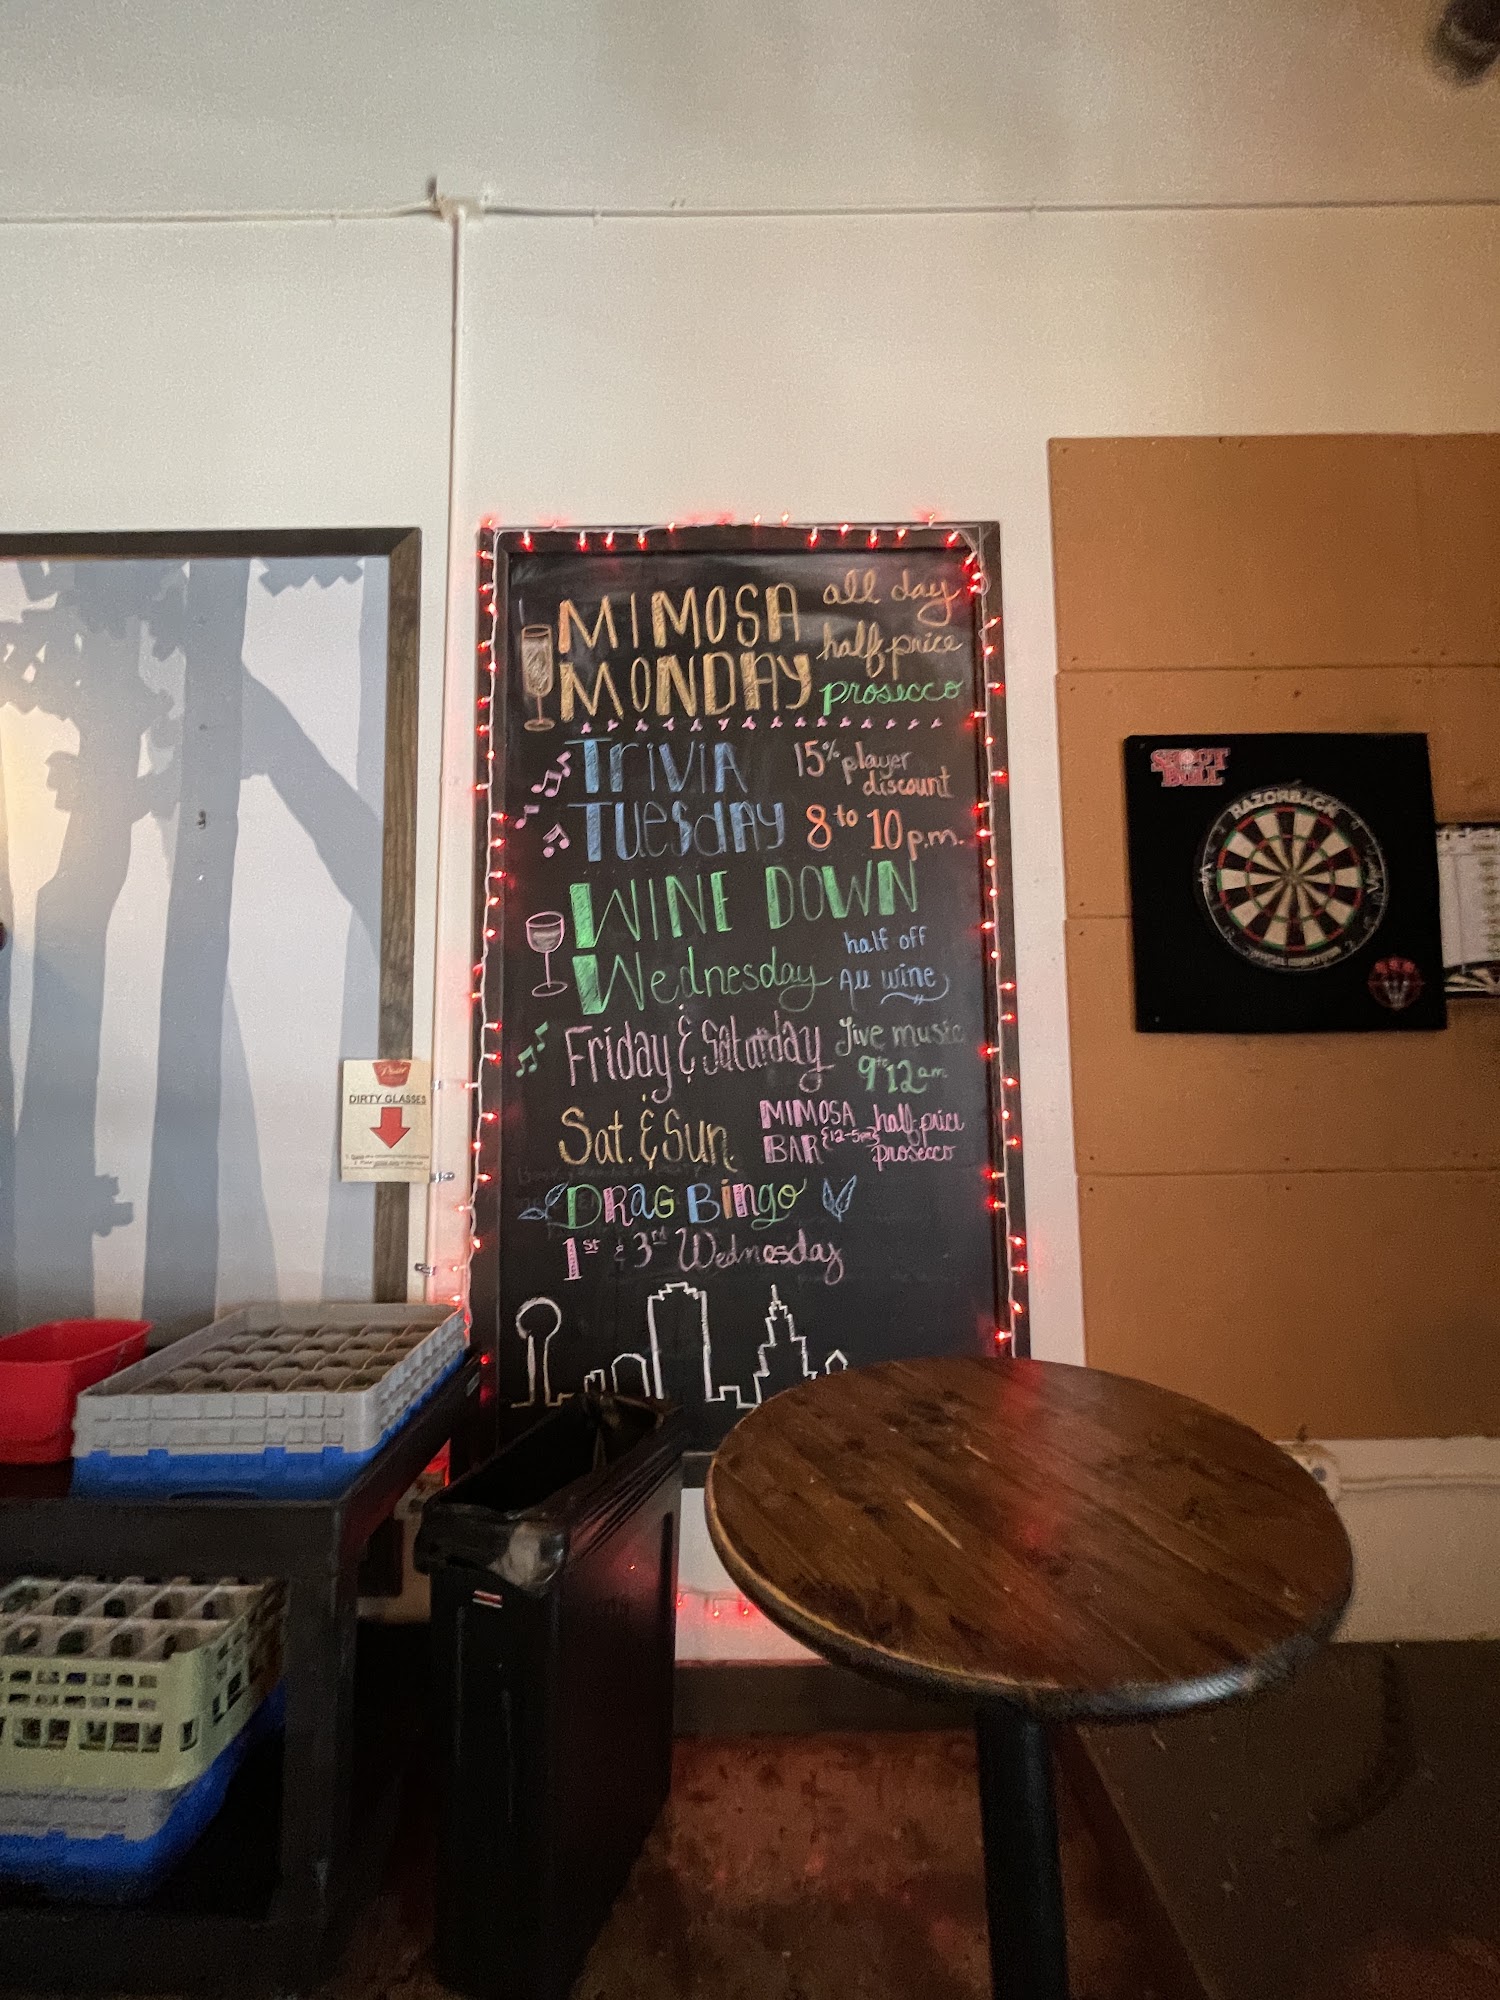 MIMOSA
MONDAY
all day
half price
prosecco
TRIVIA
TUESDAY
15% player
discount
8 to 10 p.m.
WINE DOWN
Wednesday
half off
All wine
Friday & Saturday
Live music
9 to 12 am
Sat. & Sun.
MIMOSA
BAR {12-5pm}
half price
prosecco
DRAG BINGO
1st & 3rd Wednesday
DIRTY GLASSES
SHOT
BULL
RAZORBACK